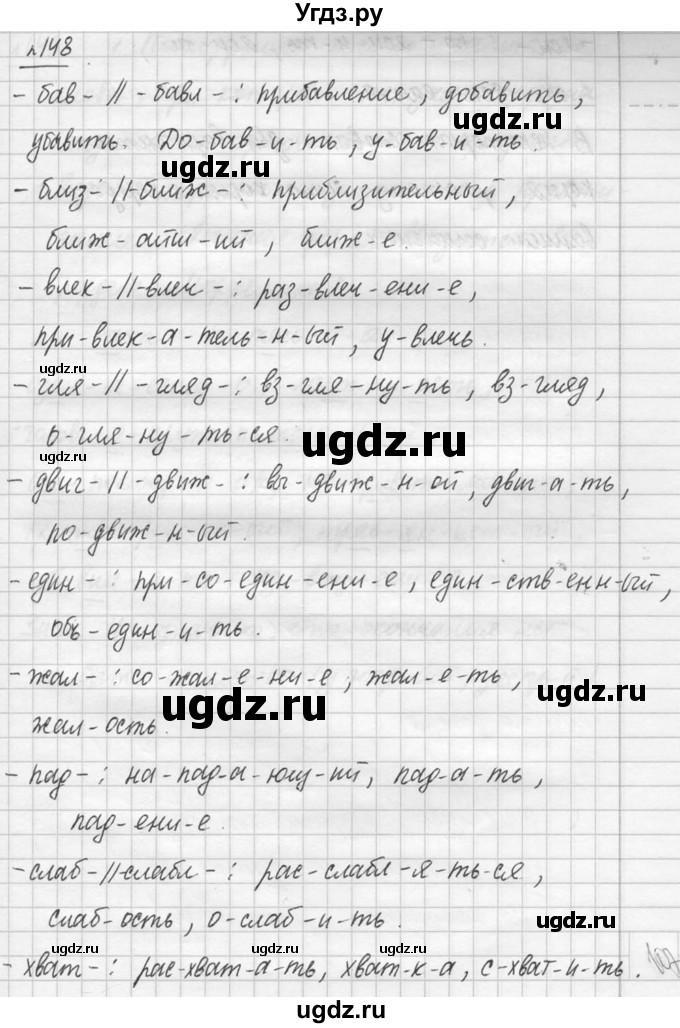 Угдз.ру
№148
- бав- // - бавл - : прибавление, добавить,
убавить. До-бав-и-ть, у-бав-и-ть.
- близ- //-ближ- : приблизительный,
ближ-айш-ий, ближ-е.
- влек-//-влеч- : раз-влеч-ени-е,
при-влек-а-тель-н-ый, у-влечь.
- гля-// - гляд- : вз-гля-ну-ть, вз-гляд,
о-гля-ну-ть-ся.
- двиг-// - движ- : вы-движ-н-ой, двиг-а-ть,
по-движ-н-ый.
- един- : при-со-един-ени-е, един-ств-енн-ый,
объ-един-и-ть.
- жал- : со-жал-е-ни-е, жал-е-ть,
жал-ость.
- пад- : на-пад-а-ющ-ий, пад-а-ть,
пад-ени-е.
- слаб-//-слабл- : рас-слабл-я-ть-ся,
слаб-ость, о-слаб-и-ть.
- хват- : рас-хват-а-ть, хват-к-а, с-хват-и-ть.
ugdz.ru
ugdz.ru
ugdz.ru
ugdz.ru
ugdz.ru
ugdz.ru
ugdz.ru
ugdz.ru
ugdz.ru
ugdz.ru
ugdz.ru
ugdz.ru
ugdz.ru
ugdz.ru